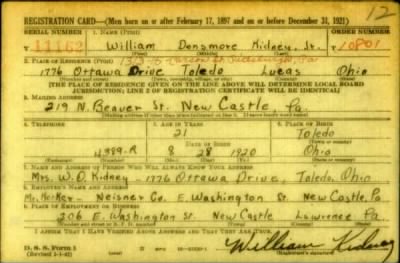 12
REGISTRATION CARD—(Men born on or after February 17, 1897 and on or before December 31, 1921)
SERIAL NUMBER 1. NAME (Print) ORDER NUMBER
11162 William Densmore Kidney, Jr. 10801
(First) (Middle) (Last)
2. PLACE OF RESIDENCE (Print)
1776 Ottawa Drive Toledo Lucas Ohio
(Number and street) (Town, township, village, or city) (County) (State)
[THE PLACE OF RESIDENCE GIVEN ON THE LINE ABOVE WILL DETERMINE LOCAL BOARD
JURISDICTION; LINE 2 OF REGISTRATION CERTIFICATE WILL BE IDENTICAL]
3. MAILING ADDRESS
219 N. Beaver St. New Castle Pa.
[Mailing address if other than place indicated on line 2. If same insert word same]
4. TELEPHONE 5. AGE IN YEARS 6. PLACE OF BIRTH
21 Toledo
DATE OF BIRTH (Town or county)
4389-R 8 28 1920 Ohio
(Exchange) (Number) (Mo.) (Day) (Yr.) (State or country)
7. NAME AND ADDRESS OF PERSON WHO WILL ALWAYS KNOW YOUR ADDRESS
Mrs. W. D. Kidney - 1776 Ottawa Drive, Toledo, Ohio
8. EMPLOYER'S NAME AND ADDRESS
Neisner Co. E. Washington St. New Castle, Pa
9. PLACE OF EMPLOYMENT OR BUSINESS
206 E. Washington St. New Castle Lawrence Pa.
(Number and street or R. F. D. number) (Town) (County) (State)
I AFFIRM THAT I HAVE VERIFIED ABOVE ANSWERS AND THAT THEY ARE TRUE.
D. S. S. Form 1
(Revised 1-1-42) William Kidney
(Registrant's signature)